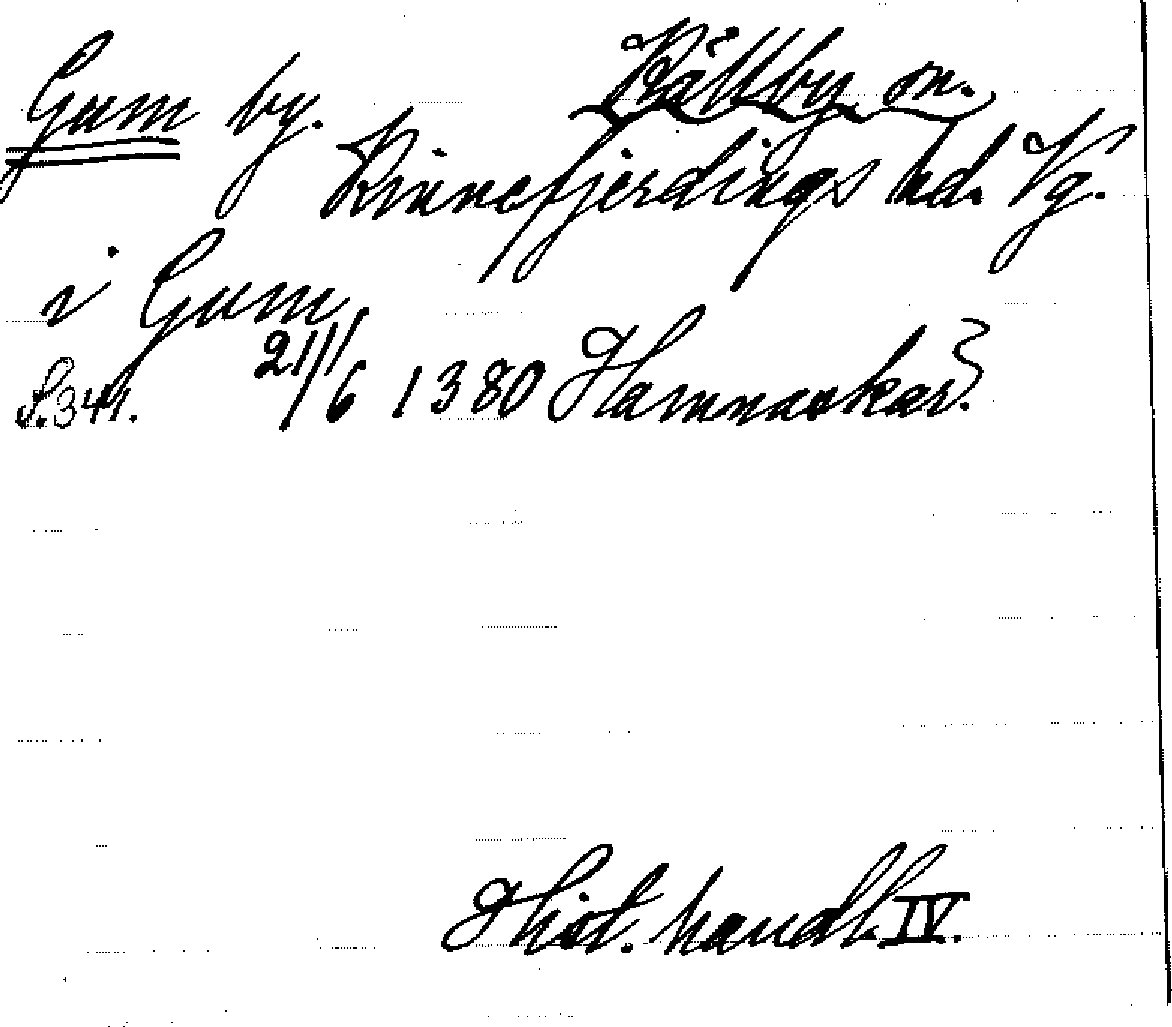 Gum by. Källby sn.
Kinnefjerdings hd. Vg.
i Gum
S. 341. 21/6 1380 Hamnaskar?
Hist. handl. IV.